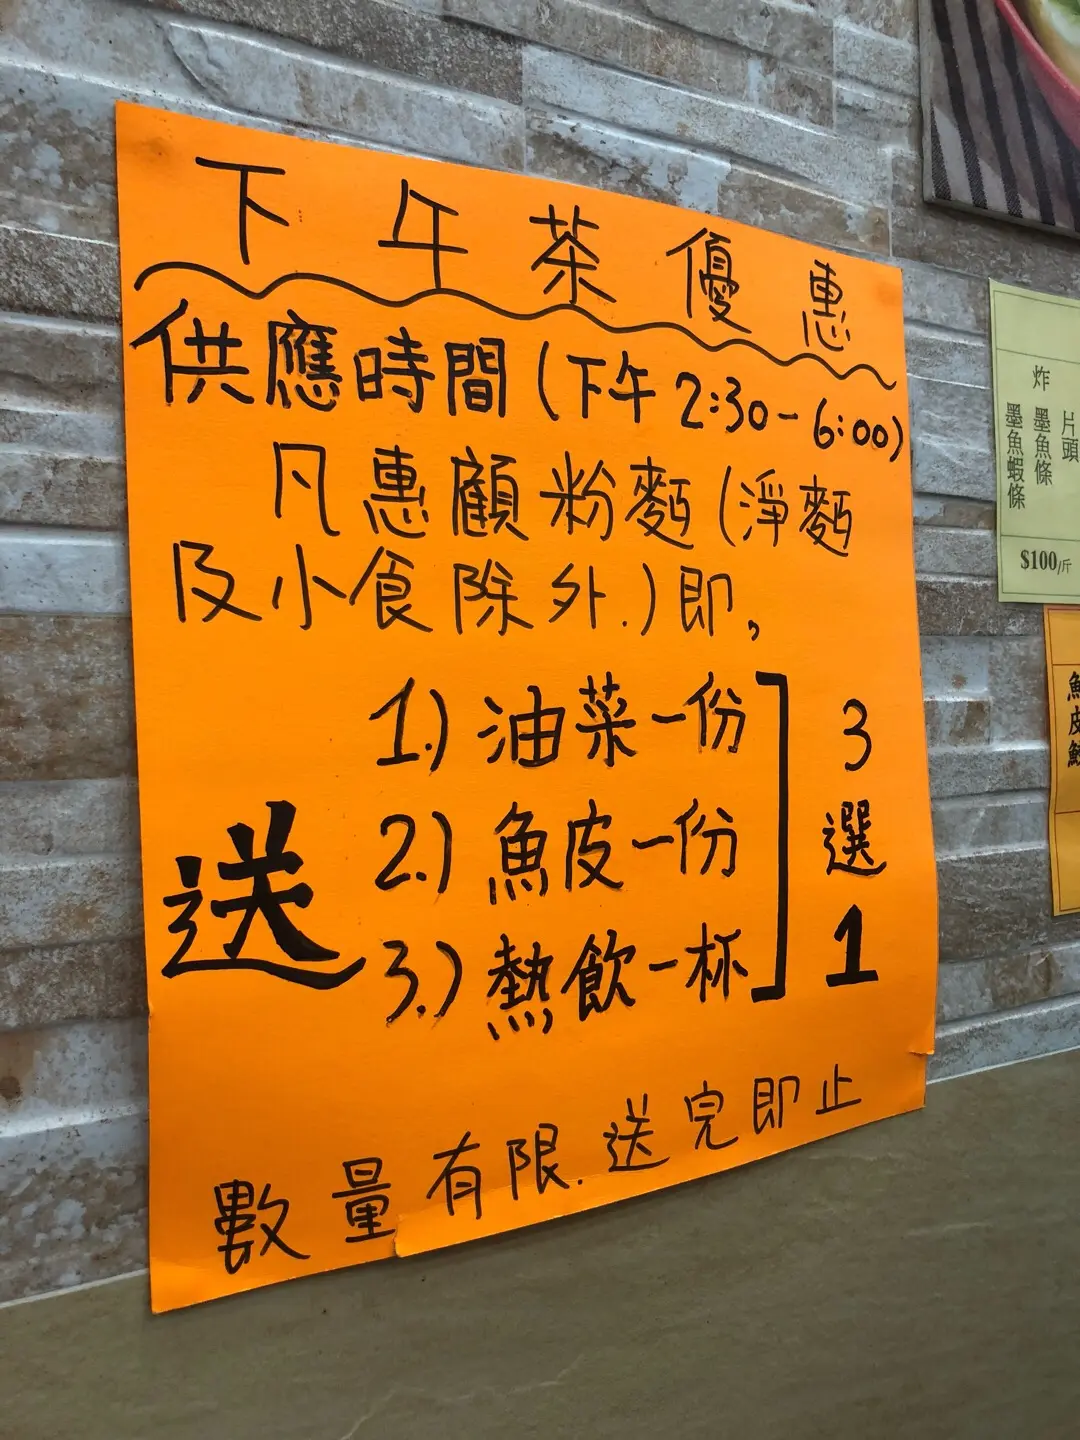 下午茶優惠
供應時間(下午2:30-6:00)
凡惠顧粉麵(淨麵
及小食除外.)即,
送
1.)油菜一份
2.)魚皮一份
3.)熱飲一杯
3選1
數量有限.送完即止
片頭
炸墨魚條
墨魚蝦條
$100/斤
魚皮